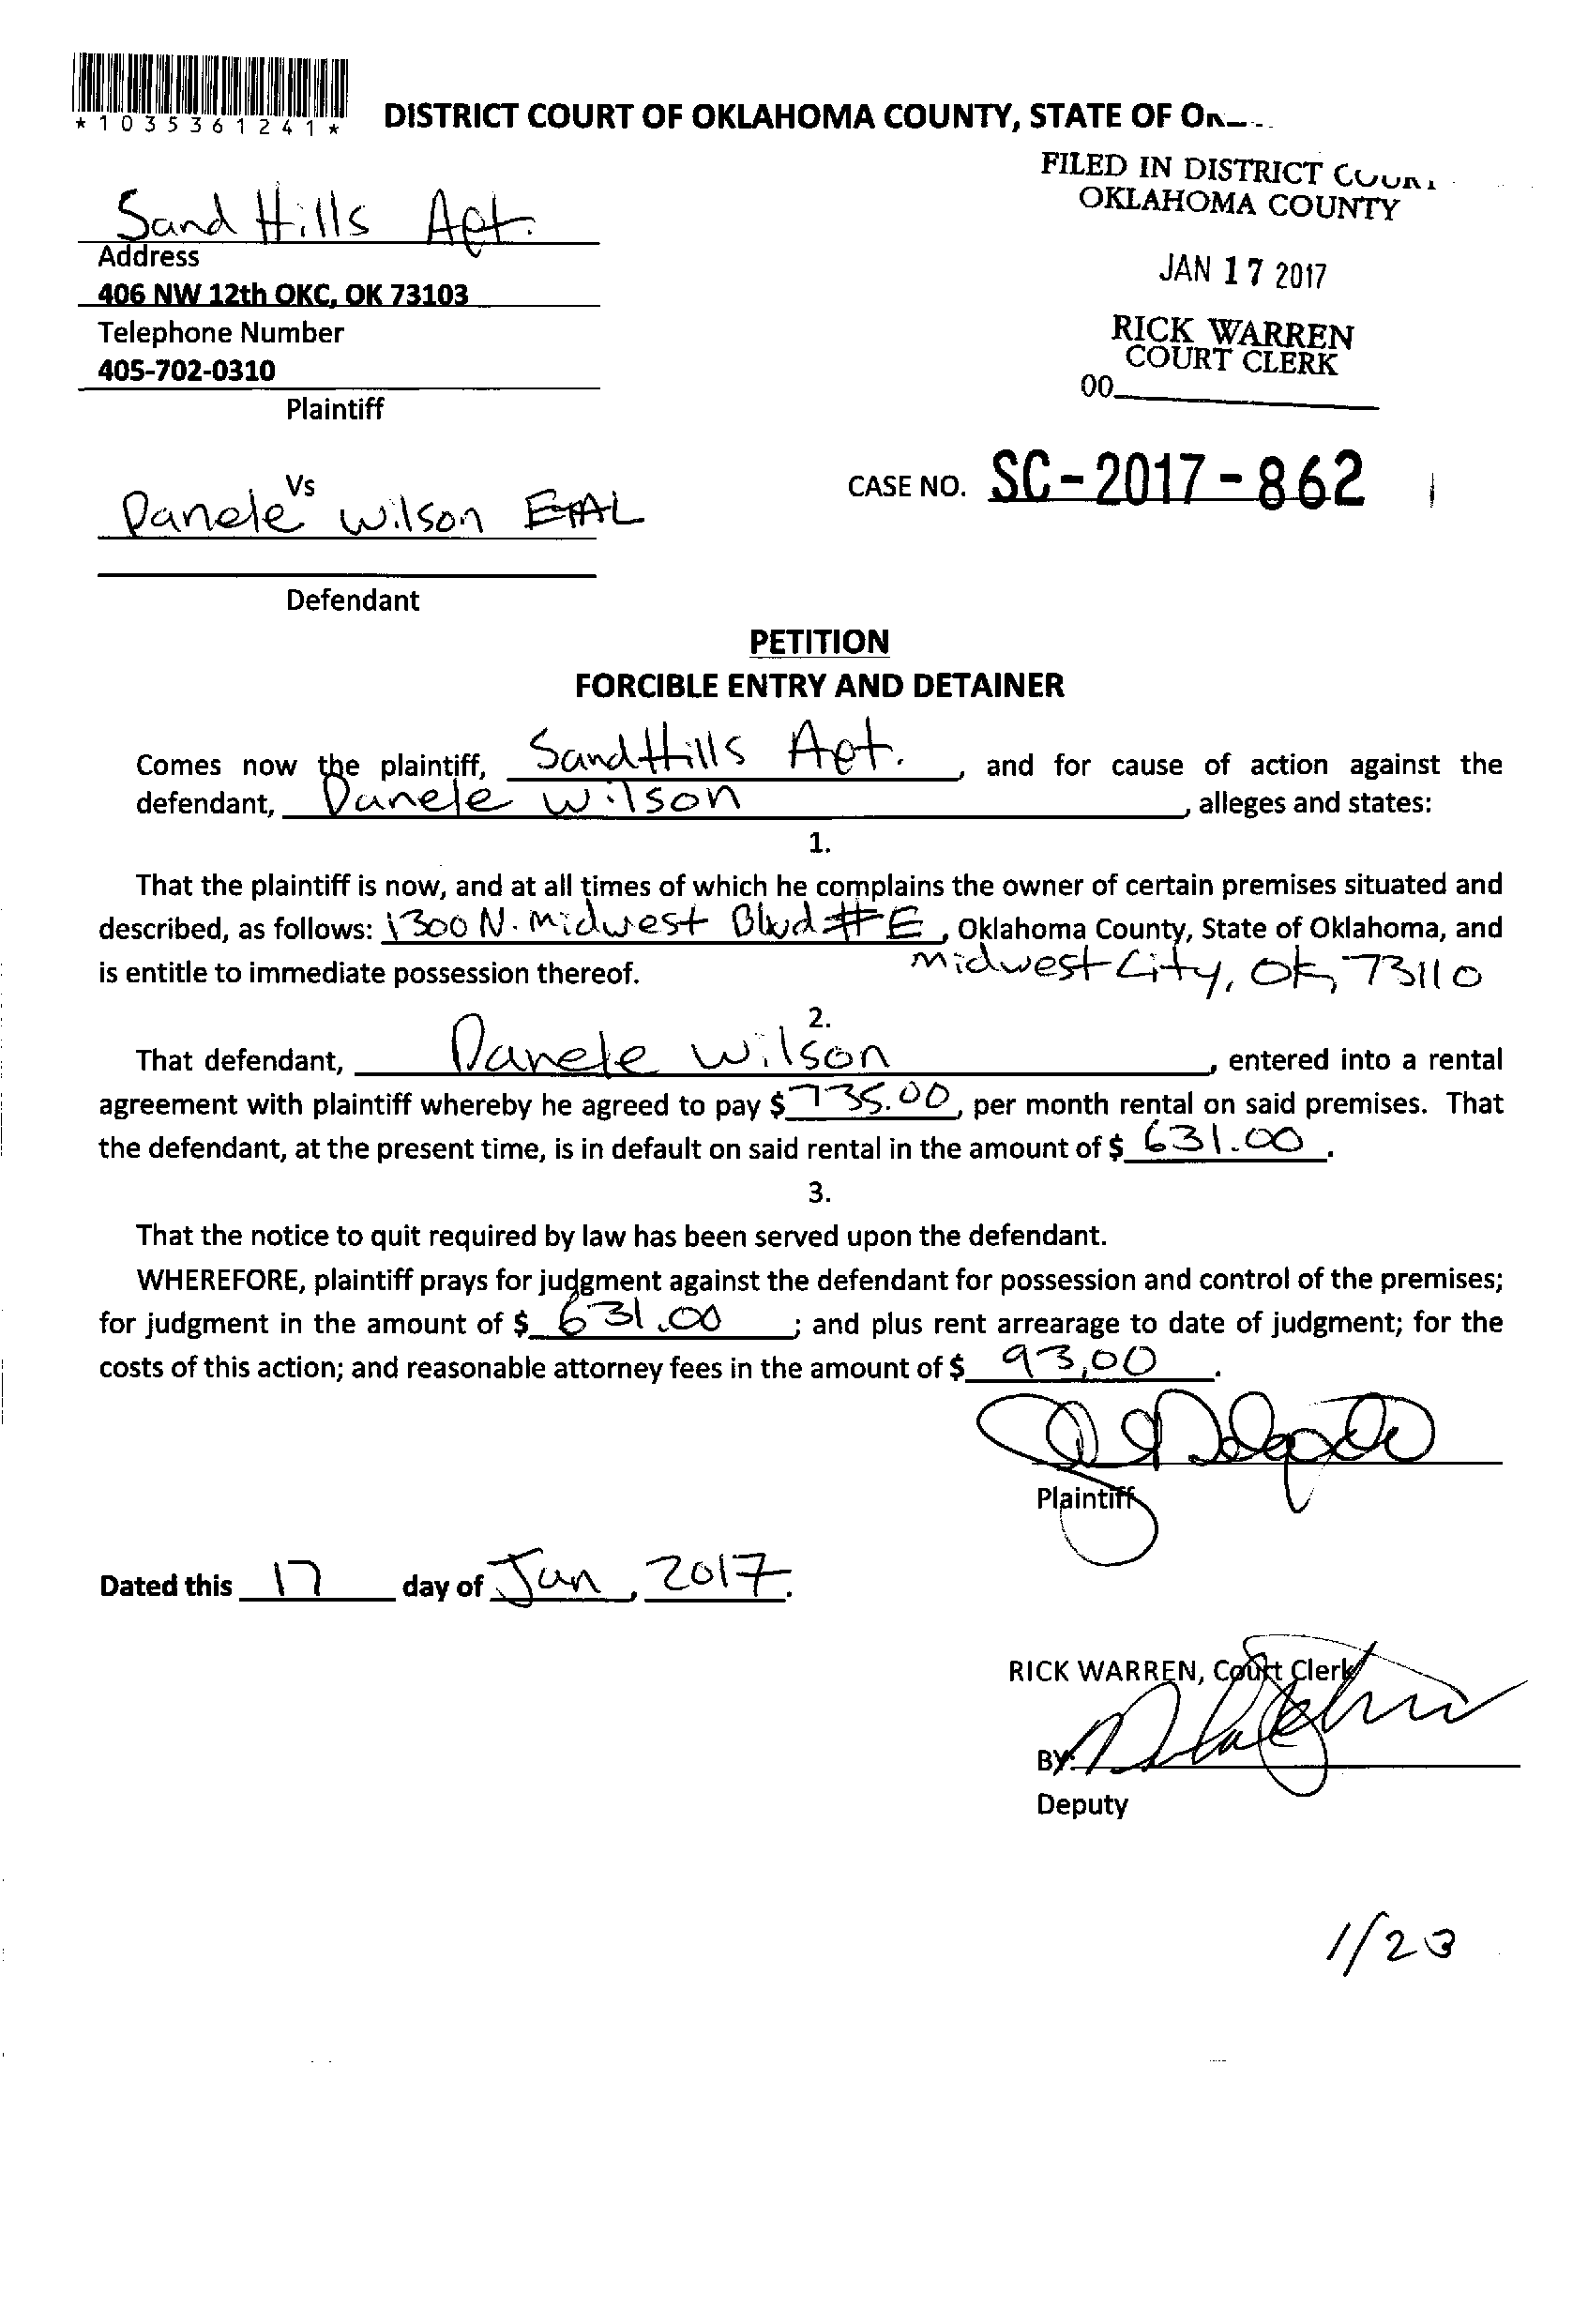 *1035361241*
DISTRICT COURT OF OKLAHOMA COUNTY, STATE OF
FILED IN DISTRICT COURT
OKLAHOMA COUNTY
JAN 17 2017
RICK WARREN
COURT CLERK
00
Sand Hills Apt.
Address
406 NW 12th OKC, OK 73103
Telephone Number
405-702-0310
Plaintiff
Vs
Danele Wilson ETAL
CASE NO. SC-2017-862
Defendant
PETITION
FORCIBLE ENTRY AND DETAINER
Comes now the plaintiff, Sand Hills Apt. , and for cause of action against the
defendant, Danele Wilson , alleges and states:
1.
That the plaintiff is now, and at all times of which he complains the owner of certain premises situated and
described, as follows: 1300 N. Midwest Blvd #E , Oklahoma County, State of Oklahoma, and
is entitle to immediate possession thereof. Midwest City, OK, 73110
2.
That defendant, Danele Wilson , entered into a rental
agreement with plaintiff whereby he agreed to pay $ 735.00 , per month rental on said premises. That
the defendant, at the present time, is in default on said rental in the amount of $ 631.00 .
3.
That the notice to quit required by law has been served upon the defendant.
WHEREFORE, plaintiff prays for judgment against the defendant for possession and control of the premises;
for judgment in the amount of $ 631.00 ; and plus rent arrearage to date of judgment; for the
costs of this action; and reasonable attorney fees in the amount of $ 93.00 .
Plaintiff
Dated this 17 day of Jan , 2017.
RICK WARREN, Court Clerk
BY:
Deputy
1/23